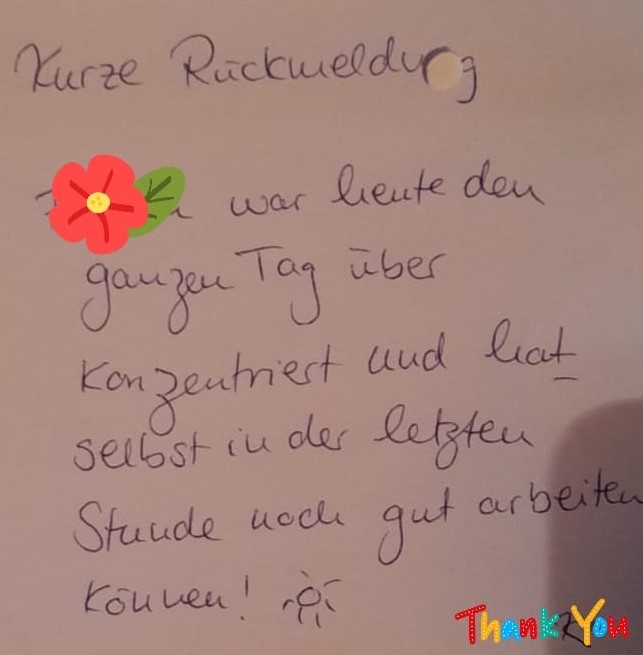 Kurze Rückmeldung
war heute den
ganzen Tag über
konzentriert und hat
selbst in der letzten
Stunde noch gut arbeiten
können!
Thank You